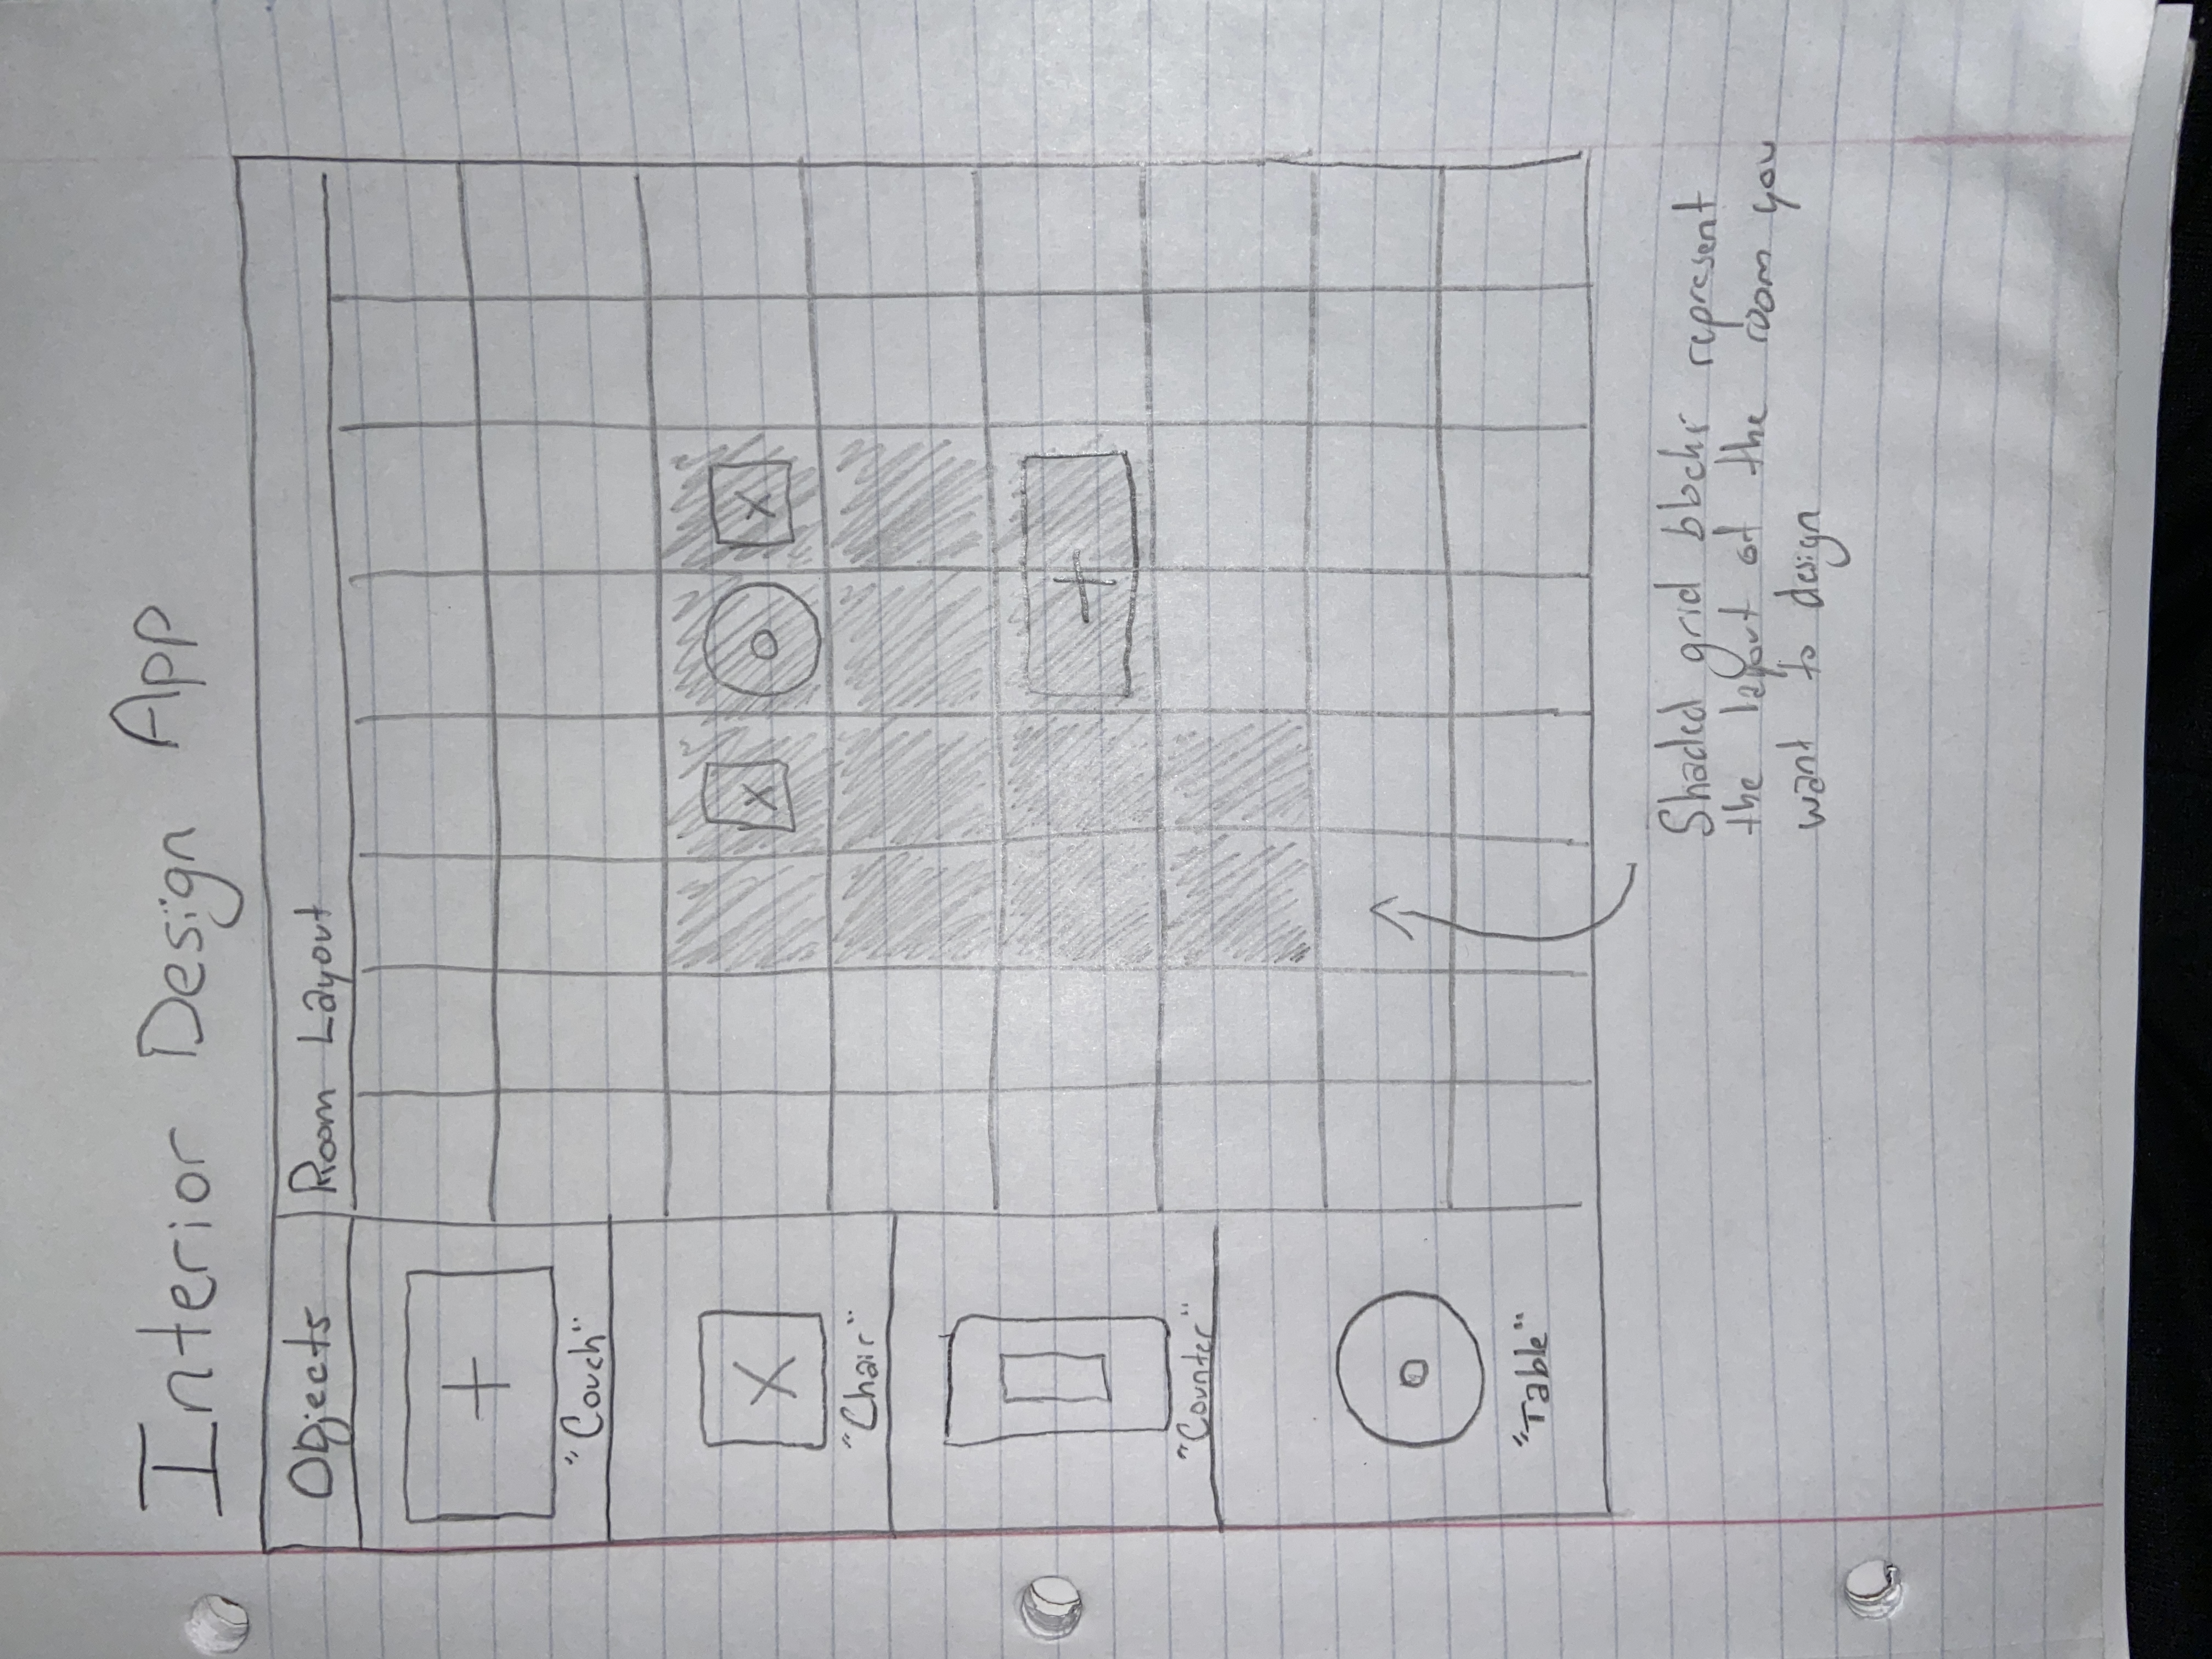 Interior Design App
Objects
Room Layout
"Couch"
"Chair"
"Counter"
"Table"
Shaded grid blocks represent
the layout of the room you
want to design